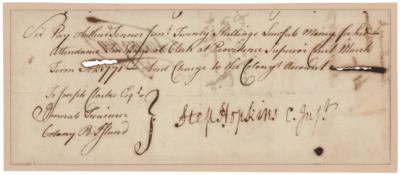 Sir Pay Arthur Fenner Junr. Twenty Shillings Lawful Money for his
Attendance Ten Days as Clerk at Providence Superior Court March
Term AD 1771 — And Charge to the Colony's Account
To Joseph Clarke Esqr.
General Treasurer
Colony R Island
Step Hopkins C. Just